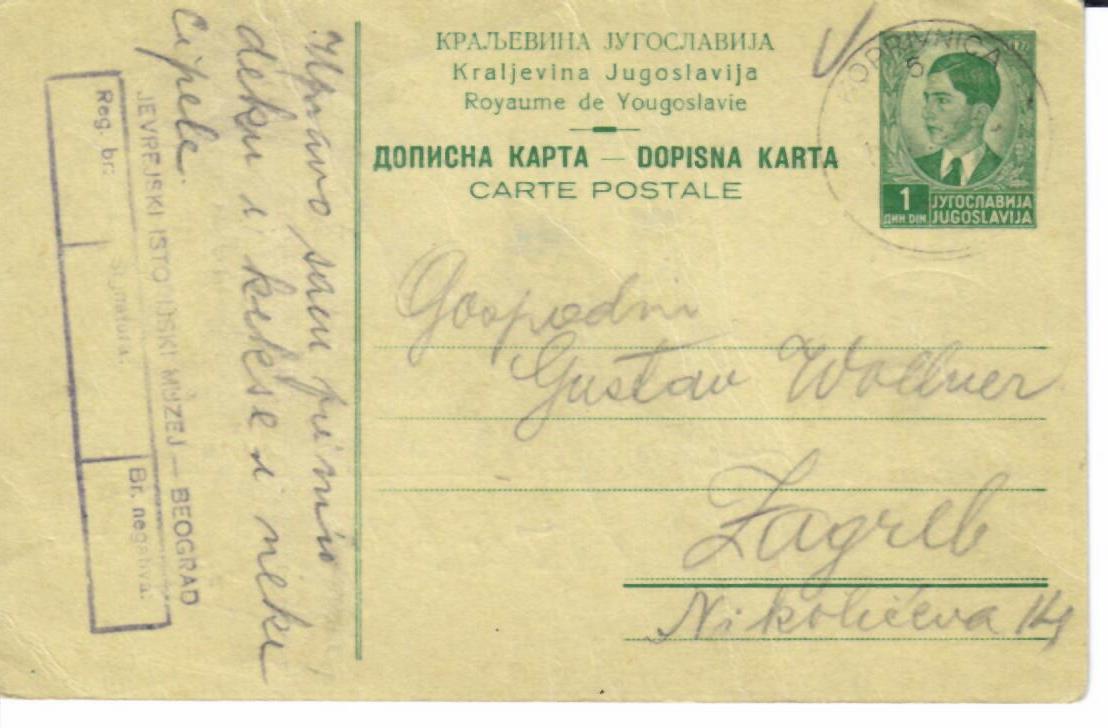 КРАЉЕВИНА ЈУГОСЛАВИЈА
Kraljevina Jugoslavija
Royaume de Yougoslavie
ДОПИСНА КАРТА — DOPISNA KARTA
CARTE POSTALE
KOPRIVNICA
5
1
ДИН DIN
ЈУГОСЛАВИЈА
JUGOSLAVIJA
Gospodin
Gustav Wollner
Zagreb
Nikolićeva
Upravo sam primio
deku i kekse i neke
cipele.
JEVREJSKI ISTORIJSKI MUZEJ — BEOGRAD
Reg. br.
Signatura.
Br. negativa.